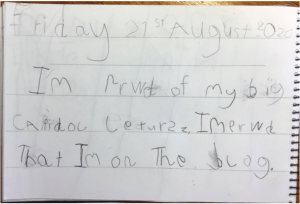 Friday 21st August 2020
Im Prwd of my big
Capdoc Leturzz Imerwd
That Im on The blog.